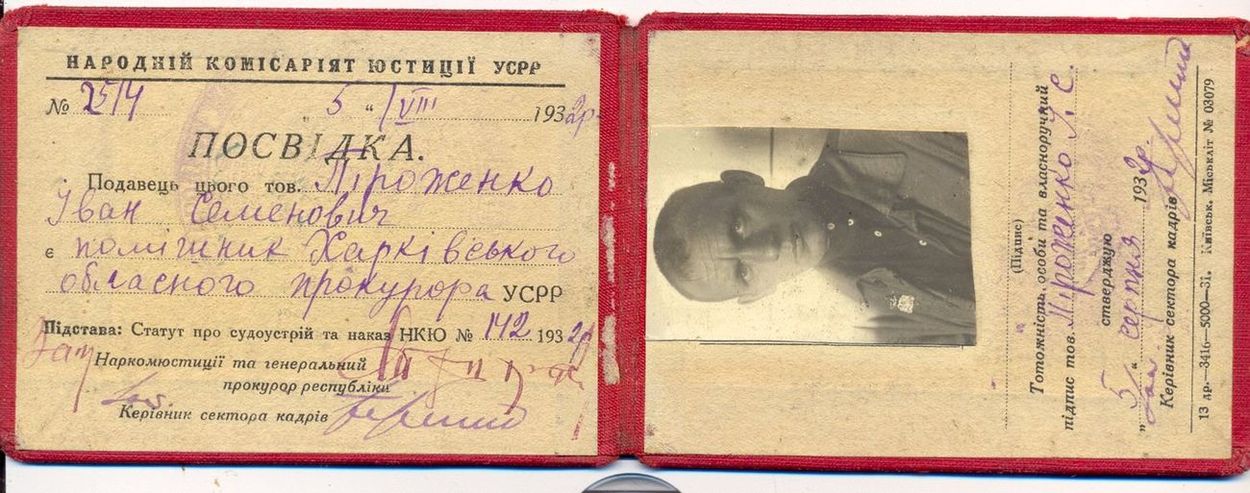 НАРОДНІЙ КОМІСАРІЯТ ЮСТИЦІЇ УСРР
№ 2514 „5“ VIII 1932р.
ПОСВІДКА.
Подавець цього тов. Піроженко
Іван Семенович
є помішник Харківського
обласного прокурора УСРР
Підстава: Статут про судоустрій та наказ НКЮ № 142 1932р
Наркомюстиції та генеральний
прокурор республіки
Керівник сектора кадрів
(Підпис)
Тотожмість особи та власноручний
підпис тов. Піроженко І. С.
стверджую
„5“ серпня 1932р.
Керівник сектора кадрів
13 др.—3416—5000—31. Київськ. Міськліт № 03079